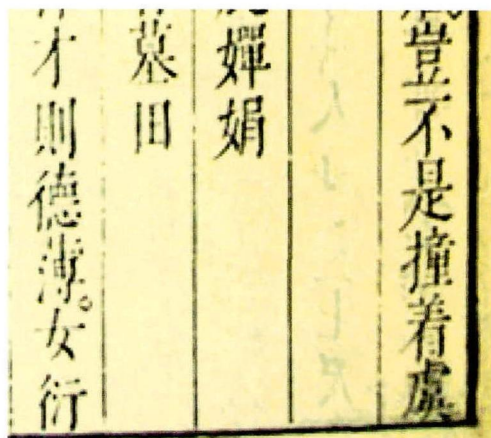 豈不是撞着處
嬋娟
墓田
才則德薄。女衍